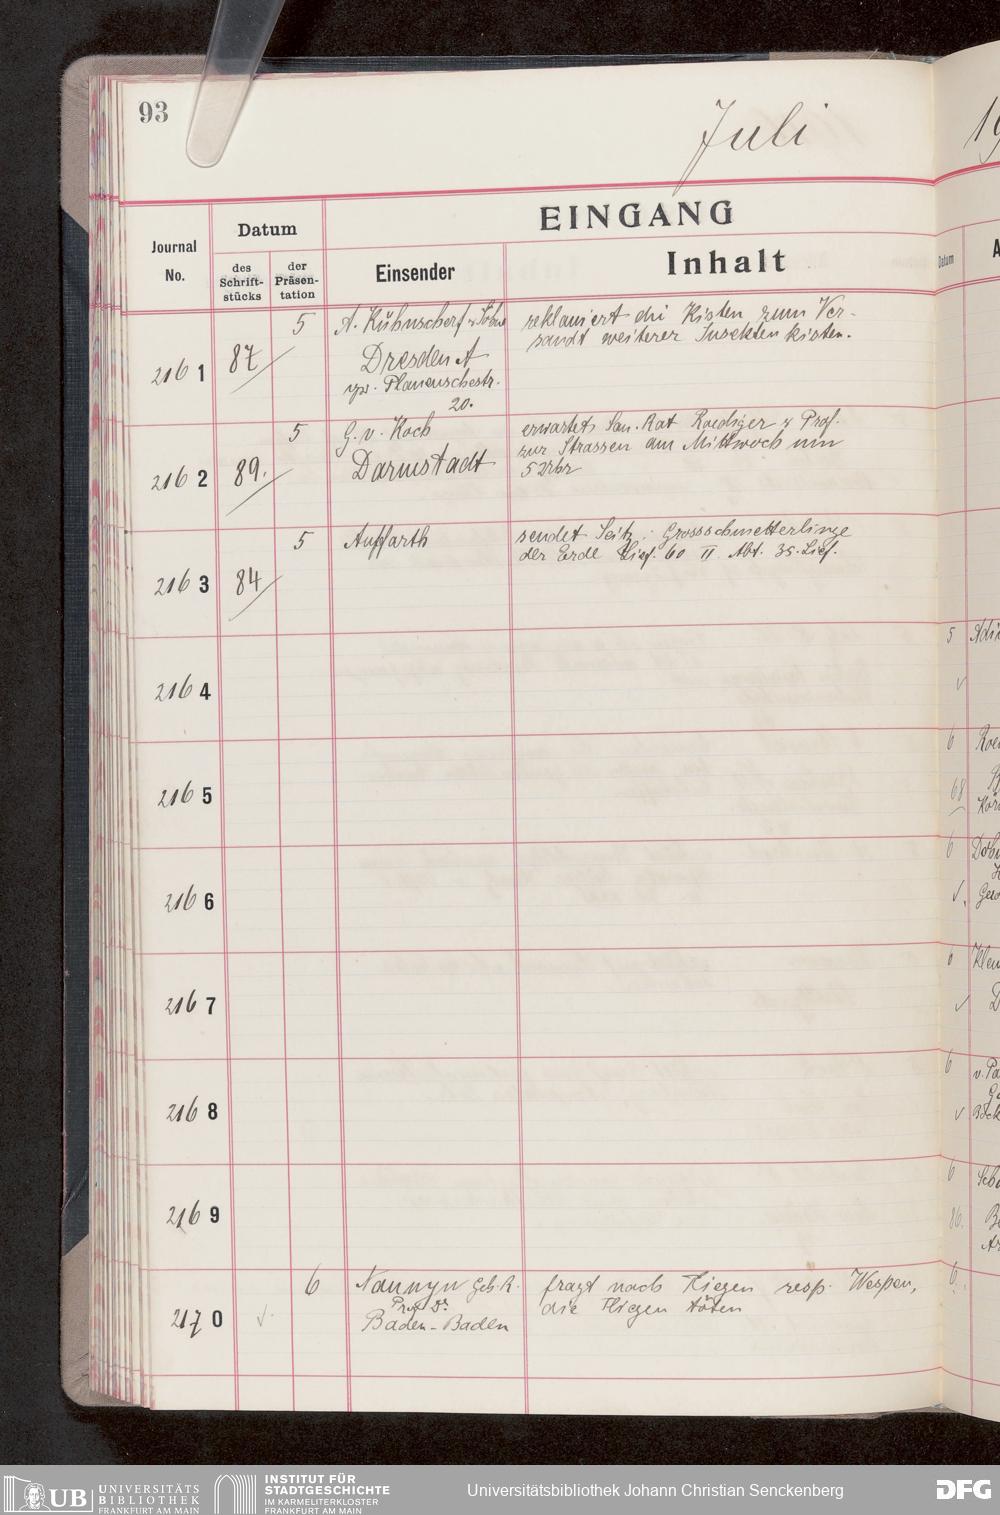 93
Juli
19
EINGANG
Journal No.
Datum
des Schrift-stücks
der Präsen-tation
Einsender
Inhalt
Datum
A
216 1
87
5
A. Kühnscherf & Söhne
Dresden A
Plauenschestr.
20.
reklamiert die Kisten zum Ver-
sandt weiterer Insektenkisten.
216 2
89.
5
G. v. Koch
Darmstadt
erwartet San. Rat Roediger & Prof.
zur Strassen am Mittwoch um
5 Uhr
216 3
84
5
Auffarth
sendet Seitz: Grossschmetterlinge
der Erde Lief. 60 II Abt. 35. Lief.
216 4
5
216 5
6
68
216 6
6
216 7
6
216 8
6
216 9
6
86.
217 0
6
Naunyn Geh. R.
Prof. Dr
Baden-Baden
fragt nach Fliegen resp. Wespen,
die Fliegen töten
6
UB UNIVERSITÄTS
BIBLIOTHEK
FRANKFURT AM MAIN
INSTITUT FÜR
STADTGESCHICHTE
IM KARMELITERKLOSTER
FRANKFURT AM MAIN
Universitätsbibliothek Johann Christian Senckenberg
DFG